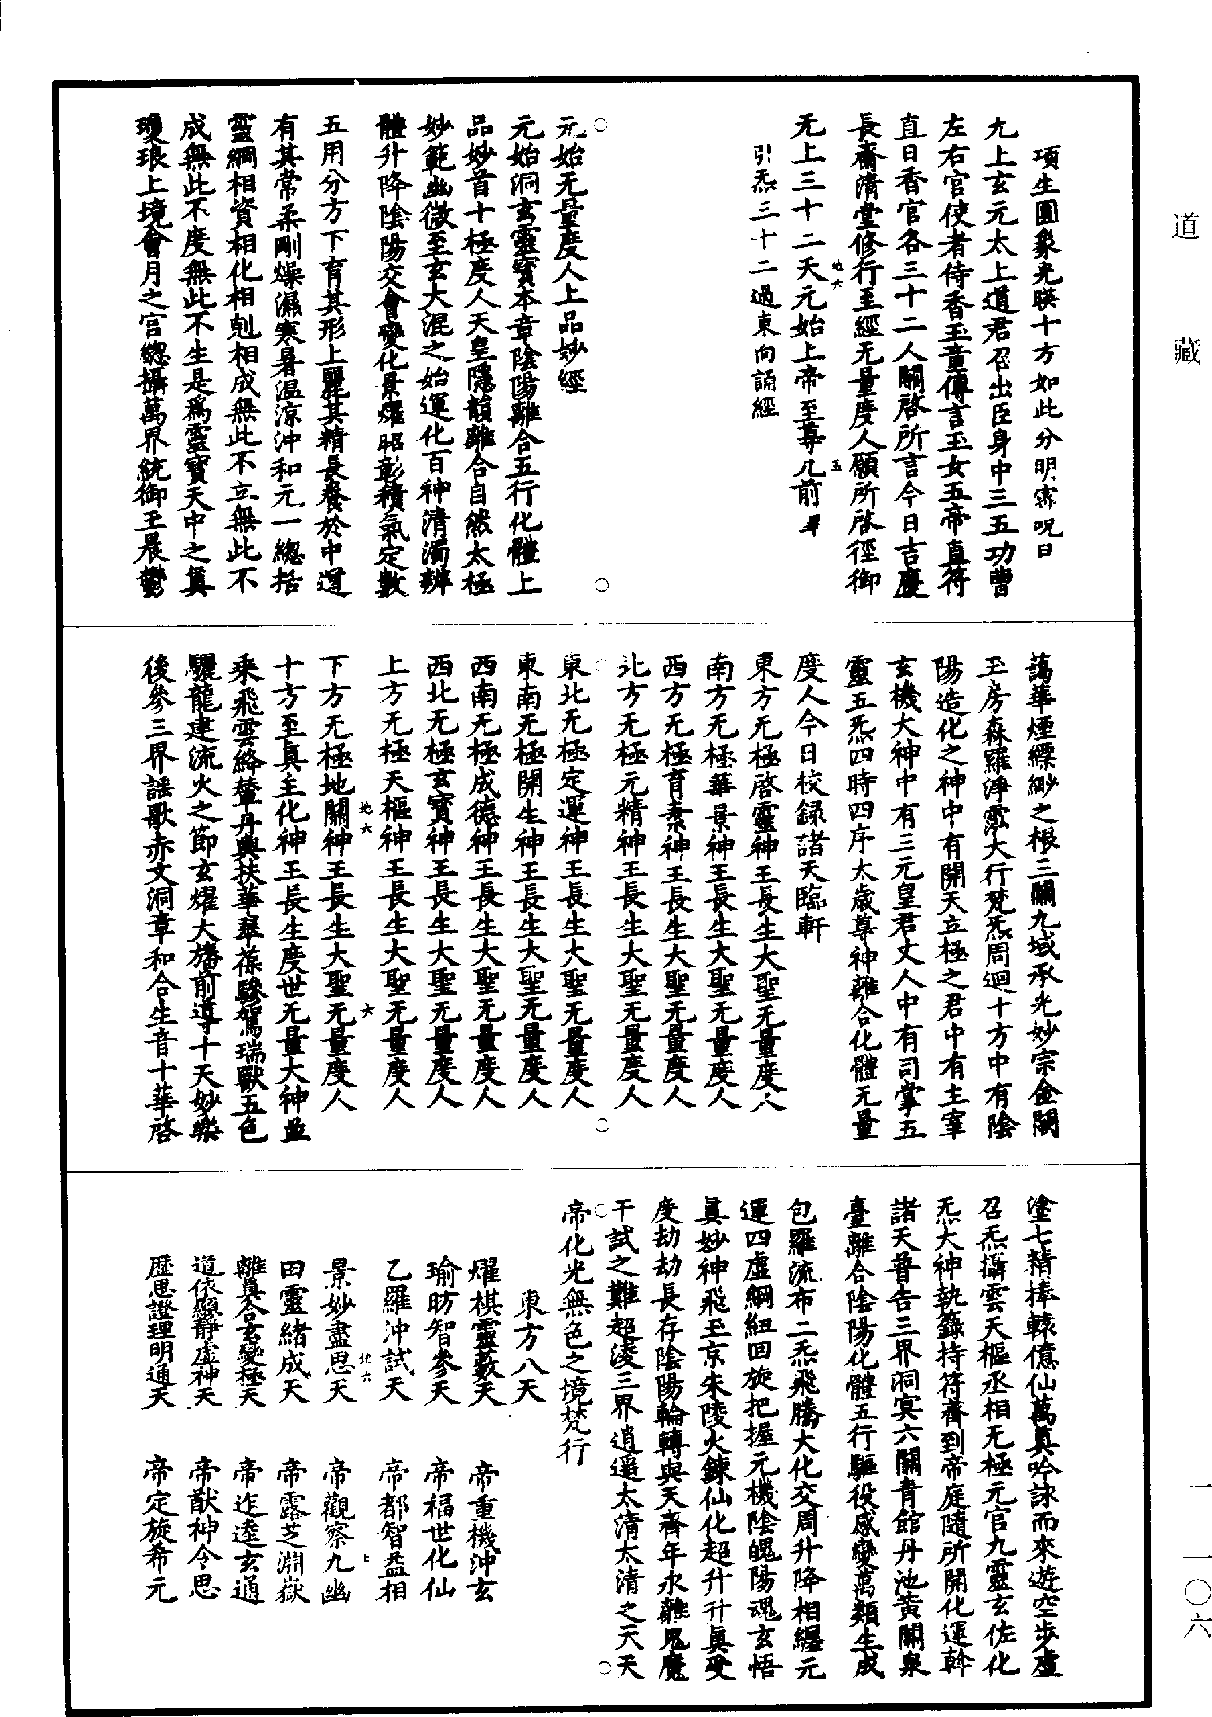 道藏
項生圓象光暎十方如此分明密呪曰
九上玄元太上道君召出臣身中三五功曹
左右官使者侍香玉童傳言玉女五帝真符
直日香官各三十二人關啓所言今日吉慶
長齋清堂修行至經无量度人願所啓徑御
无上三十二天元始上帝至尊几前畢
引炁三十二過東向誦經
元始无量度人上品妙經
元始洞玄靈寶本章陰陽離合五行化體上
品妙首十極度人天皇隱韻離合自然太極
妙範幽微至玄大混之始運化百神清濁辨
體升降陰陽交會變化景燿昭彰積氣定數
五用分方下育其形上麗其精長養於中運
有其常柔剛燥濕寒暑温涼沖和元一總括
靈綱相資相化相剋相成無此不立無此不
成無此不度無此不生是爲靈寶天中之真
瓊琅上境會月之宮總攝萬界統御王晨鬱
藹華煙縹緲之根三關九域承光妙宗金闕
玉房森羅淨霐大行梵炁周迴十方中有陰
陽造化之神中有開天立極之君中有主宰
玄機大神中有三元皇君丈人中有司掌五
靈五炁四時四序太歲尊神離合化體无量
度人今日校録諸天臨軒
東方无極啓靈神王長生大聖无量度人
南方无極華景神王長生大聖无量度人
西方无極育素神王長生大聖无量度人
北方无極元精神王長生大聖无量度人
東北无極定運神王長生大聖无量度人
東南无極開生神王長生大聖无量度人
西南无極成德神王長生大聖无量度人
西北无極玄寶神王長生大聖无量度人
上方无極天樞神王長生大聖无量度人
下方无極地關神王長生大聖无量度人
十方至真主化神王長生度世无量大神並
乘飛雲絡輦丹輿扶華翠葆驂駕瑞獸五色
驪龍建流火之節玄燿大旛前導十天妙樂
後參三界謡歌赤文洞章和合生音十華啓
塗七精捧轅億仙萬真吟詠而來遊空步虛
召炁攝雲天樞丞相无極元官九靈玄佐化
炁大神執籙持符齊到帝庭隨所開化運幹
諸天普告三界洞冥六關青館丹池黃關泉
臺離合陰陽化體五行驅役感變萬類生成
包羅流布二炁飛騰大化交周升降相纏元
運四虛綱紐回旋把握元機陰魄陽魂玄悟
真妙神飛玉京朱陵火鍊仙化超升升真受
度劫劫長存陰陽輪轉與天齊年永離鬼魔
干試之難超淩三界逍遥太清太清之天天
帝化光無色之境梵行
東方八天
燿棋靈藪天　帝重機沖玄
瑜昉智參天　帝福世化仙
乙羅沖試天　帝都智益相
景妙盡思天　帝觀察九幽
田靈緒成天　帝露芝淵嶽
離真合玄變極天　帝迮逵玄通
道依顯靜虛神天　帝猷神令思
歷思證理明通天　帝定旋希元
一一〇六